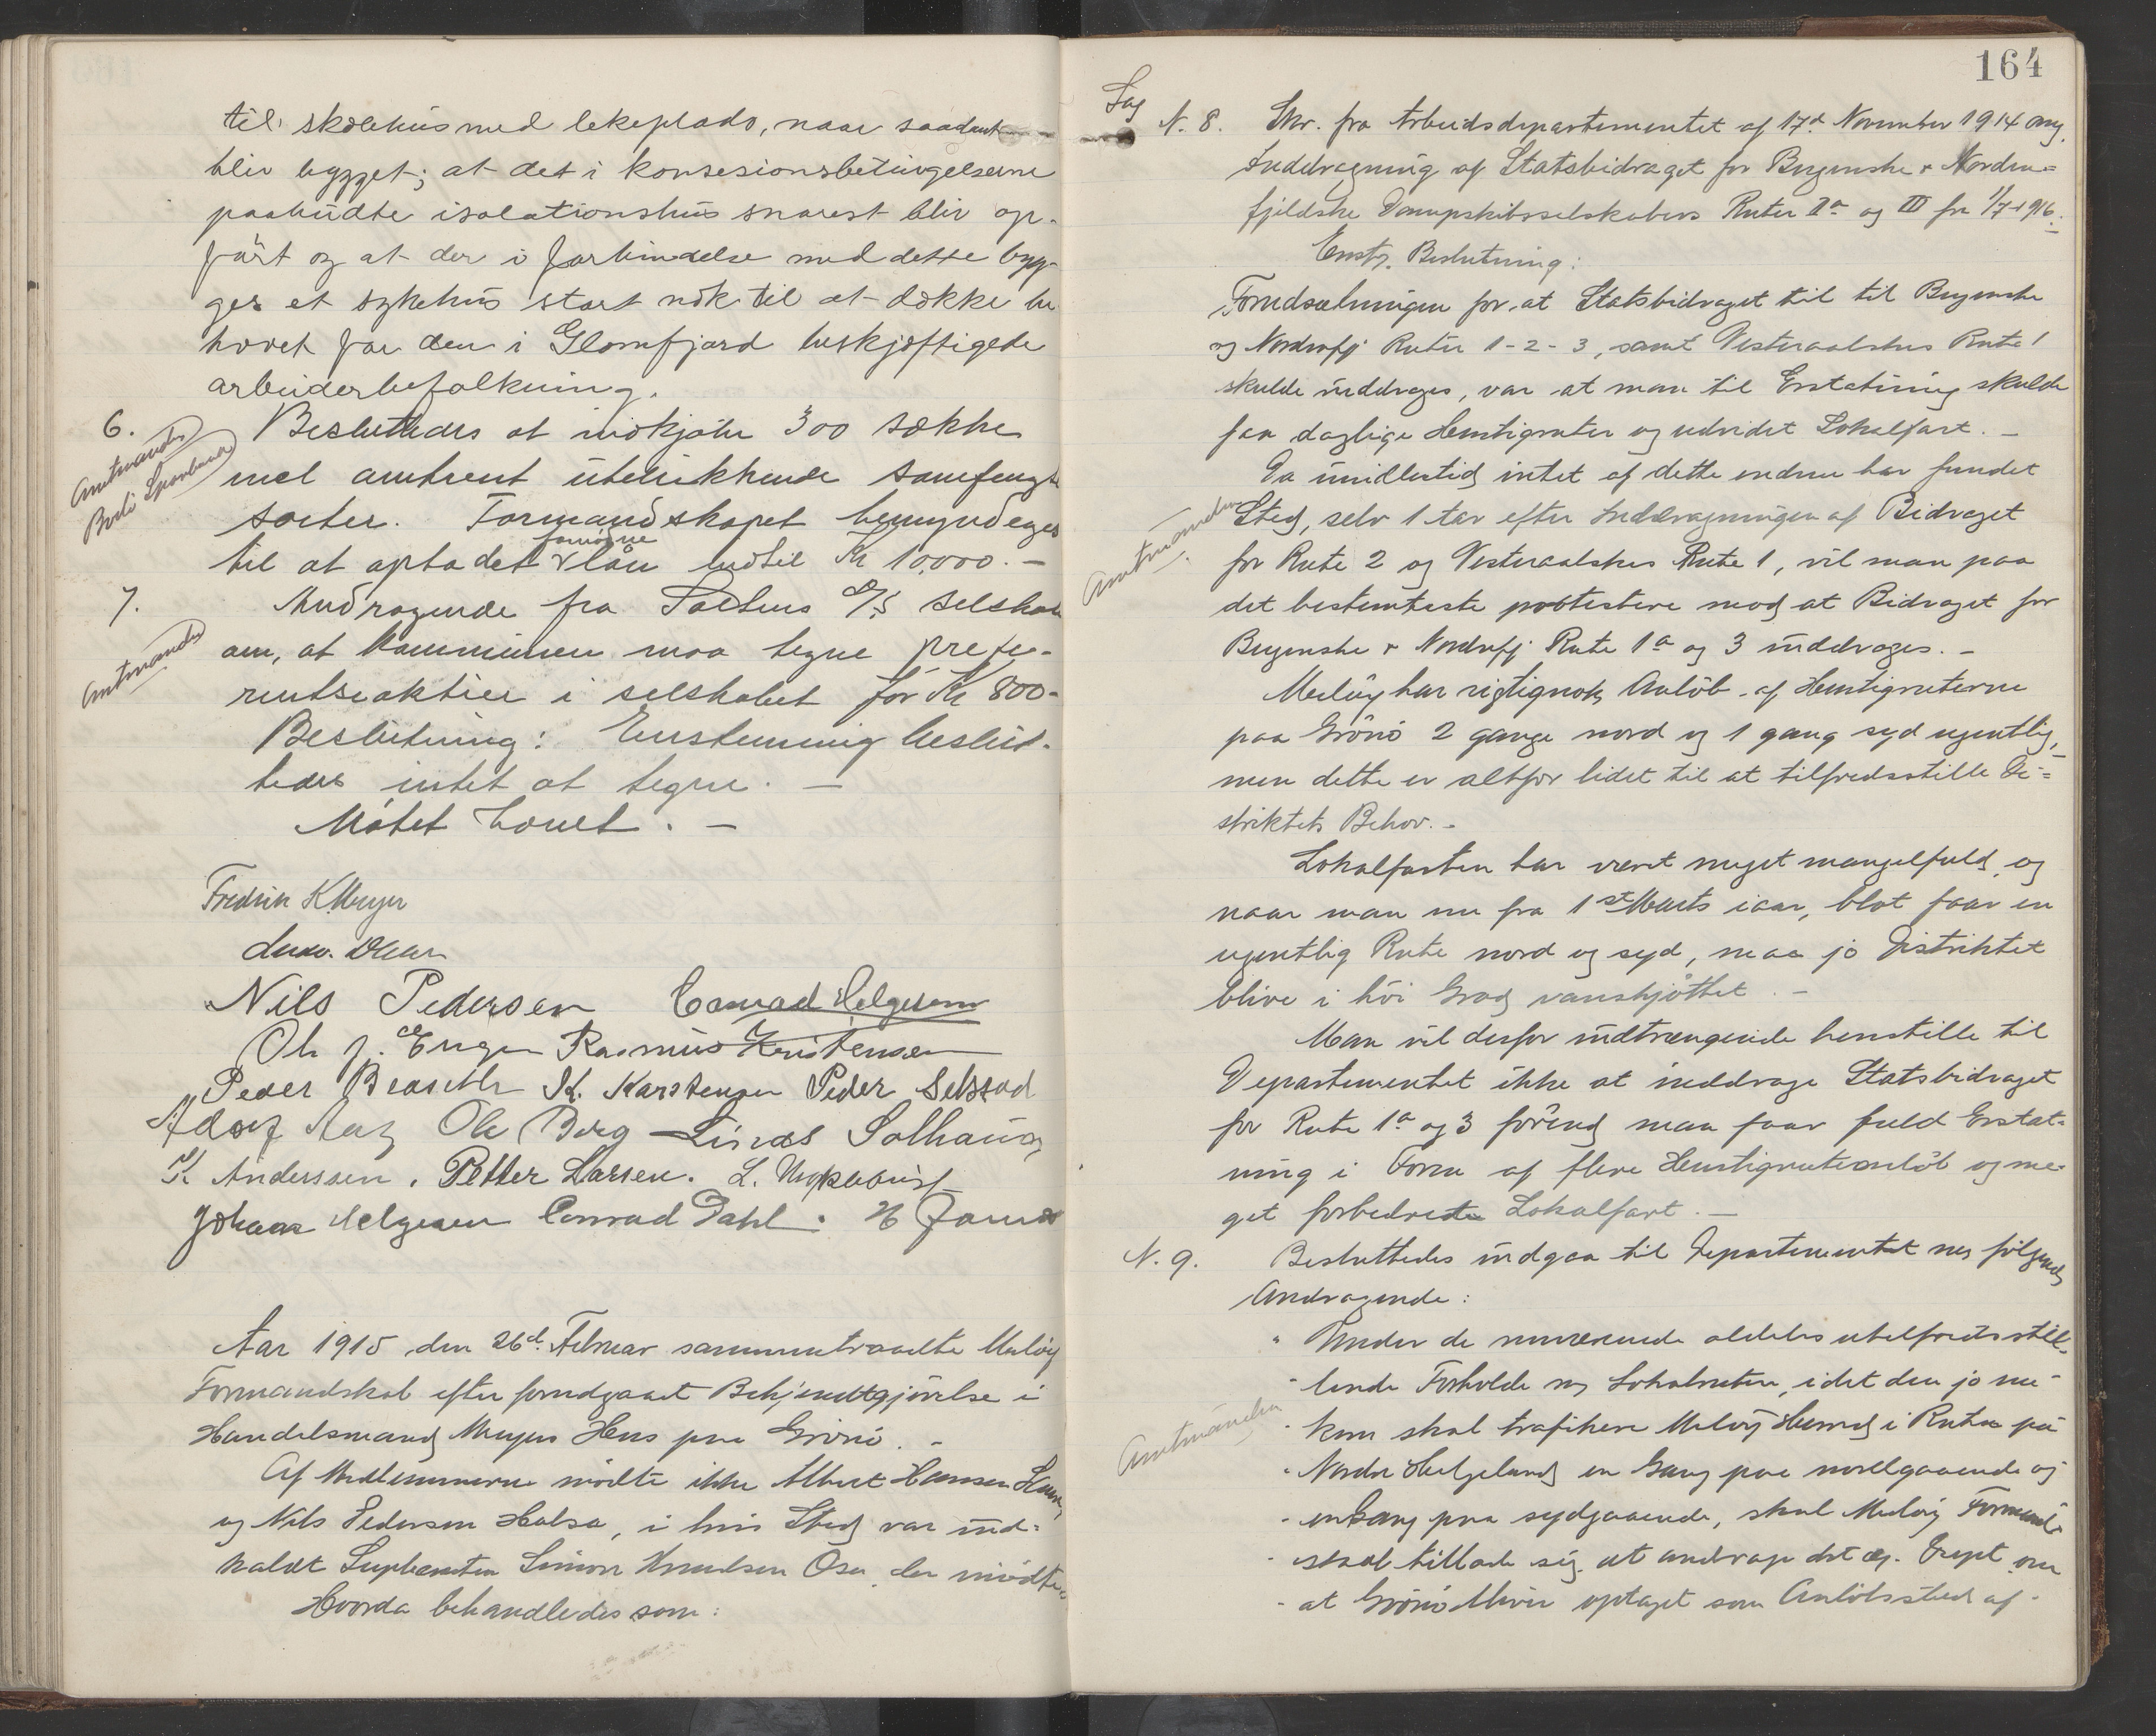 til skolehus med lekeplads, naar saadant
blir bygget; at det i konsesionsbetingelserne
paabudte isolationshus snarest blir op-
ført og at der i forbindelse med dette byg-
ges et sykehus stort nok til at dække be
hovet for den i Glomfjord beskjæftigede
arbeiderbefolkning.
6. Besluttedes at indkjøbe 300 sække
Amtmanden
mel omtrent utelukkende
sorter. Formandskapet bemyndeges
fornødne
til at opta det lån indtil Kr 10,000.-
7. Andragende fra Saltens D/S selskab
Amtmanden
om, at kommunen maa tegne prefe-
renceaktier i selskabet for Kr 800-
Beslutning: Enstemmig beslut-
tedes intet at tegne. -
Møtet hævet. -
Fredrik K. Meyer
Nils Pedersen Conrad Helgesen
Ole J. Engen Rasmus Kristensen
Peder K. Karstensen Peder Selstad
Adolf Ole Berg Linæs Solhaug
K. Anderssen. Petter Larsen. L.
Johan Helgesen Conrad Dahl.
Aar 1915 den 26d. Februar sammentraadte Meløy
Formandskab efter forudgaaet Bekjendtgjørelse i
Handelsmand Meyers Hus paa Grønø. -
Af Medlemmerne mødte ikke Albert Hansen
og Nils Pedersen Halsa, i hvis Sted var ind-
kaldt Supleanten Simon Knudsen Osa, der mødte.
Hvorda behandledes som:
164
Sag
N. 8. Skr. fra Arbeidsdepartementet af 17d November 1914 ang.
Inddragning af Statsbidraget for Bergenske & Norden-
fjeldske Dampskibsselskabers Ruter IIa og III fra 1/7-1916.
Enst. Beslutning:
Forudsætningen for at Statsbidraget til til Bergenske
og Nordenfj Ruter 1-2-3, samt Vesteraalskes Rute 1
skulde inddrages, var at man til Erstatning skulde
faa daglige Hurtigruter og udvidet Lokalfart. -
Da imidlertid intet af dette endnu har fundet
Amtmanden
Sted, selv 1 Aar efter Inddragningen af Bidraget
for Rute 2 og Vesteraalskes Rute 1, vil man paa
det bestemteste protestere mod at Bidraget for
Bergenske & Nordenfj Rute 1a og 3 inddrages. -
Meløy har rigtignok Anløb af Hurtigruterne
paa Grønø 2 gange nord og 1 gang syd ugentlig,
men dette er altfor lidet til at tilfredsstille Di-
striktets Behov. -
Lokalfarten har været meget mangelfuld, og
naar man nu fra 1st Marts iaar, blot faar en
ugentlig Rute nord og syd, maa jo Distriktet
blive i høi Grad vanskjøttet. -
Man vil derfor indtrængende henstille til
Departementet ikke at inddrage Statsbidraget
for Rute 1a og 3 førend man faar fuld Erstat-
ning i Form af flere Hurtigruteanløb og me-
get forbedret Lokalfart. -
N. 9. Besluttedes indgaa til Departementet med følgende
Andragende:
" Under de nuværende aldeles utilfredsstil-
" lende Forholde med Lokalruten, idet den jo nu
Amtmanden
" kun skal trafikere Meløy Herred i Ruten på
" Nordre Helgeland en Gang paa nordgaaende og
" en Gang paa sydgaaende, skal Meløy Formand-
" skab tillade sig at andrage det om
" at Grønø bliver optaget som Anløbssted af